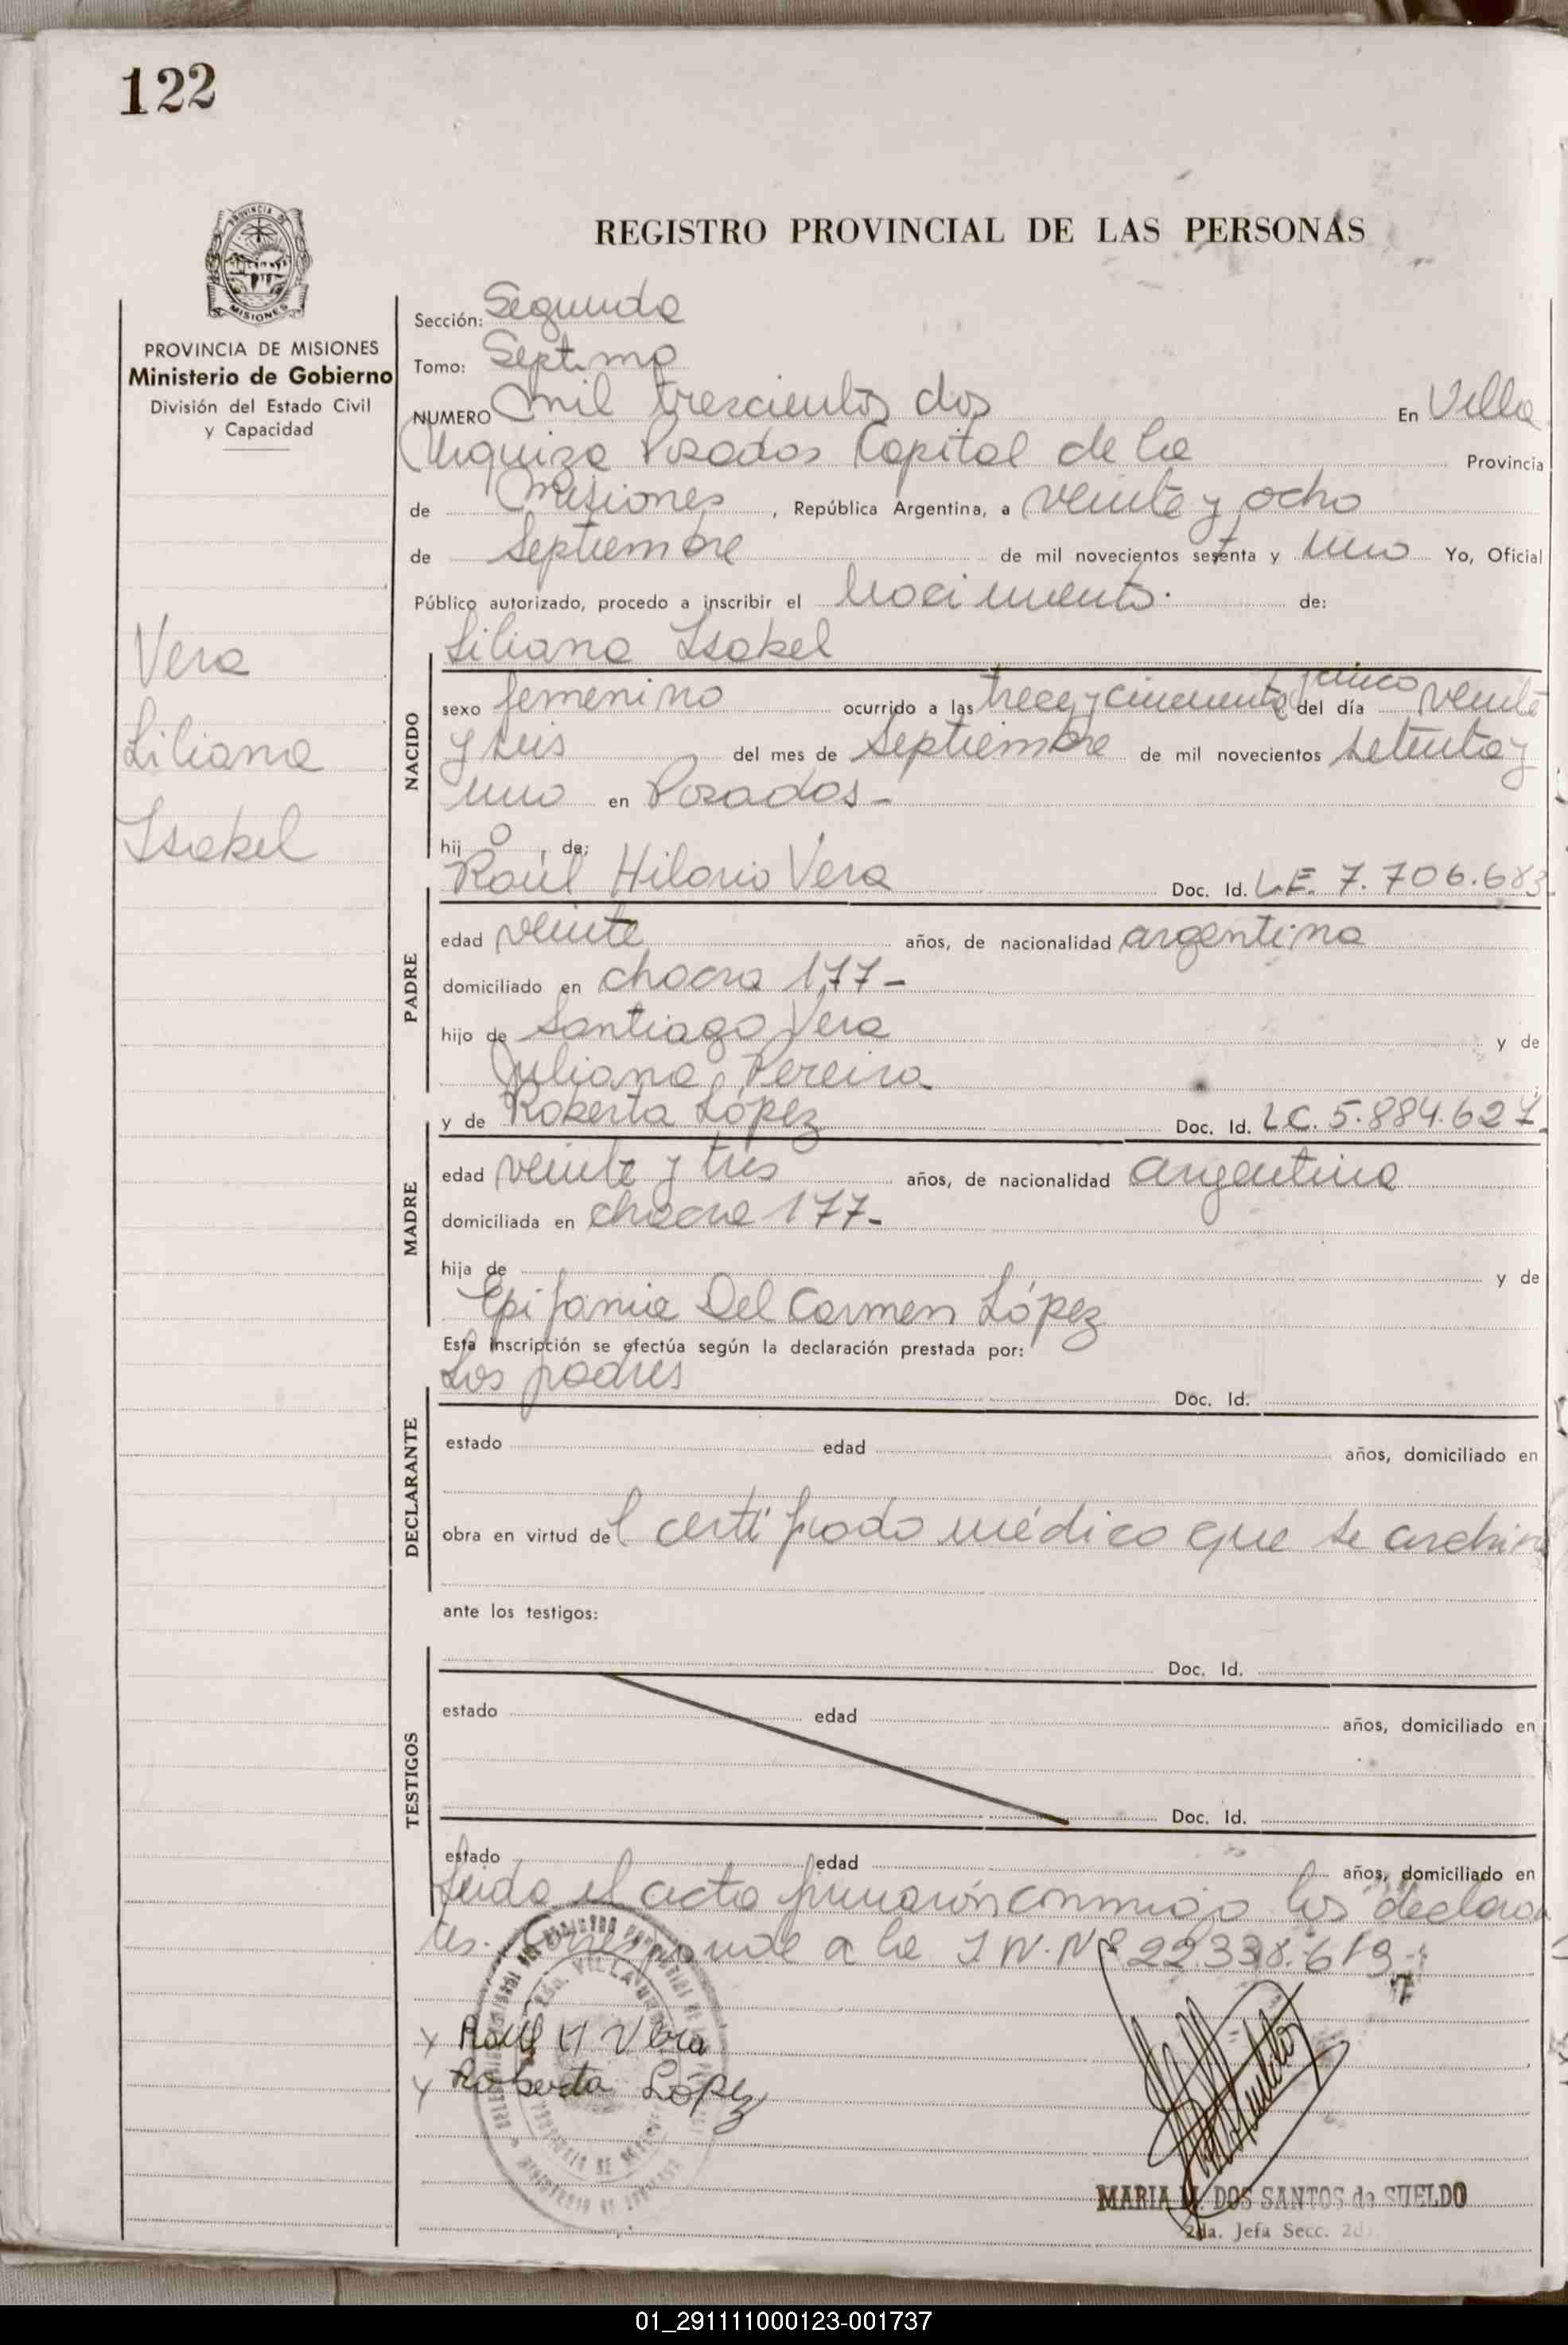 122
REGISTRO PROVINCIAL DE LAS PERSONAS
PROVINCIA DE MISIONES
Ministerio de Gobierno
División del Estado Civil
y Capacidad
Vera
Liliana
Isabel
Sección: Segunda
Tomo: Septimo
NUMERO Mil trescientos dos En Villa
Urquiza Posadas Capital de la Provincia
de Misiones, República Argentina, a veinte y ocho
de Septiembre de mil novecientos setenta y uno Yo, Oficial
Público autorizado, procedo a inscribir el nacimiento. de:
Liliana Isabel
NACIDO
sexo femenino ocurrido a las trece y cincuenta y cinco del día veinte
y seis del mes de Septiembre de mil novecientos setenta y
uno en Posadas -
hij a de:
Raúl Hilario Vera Doc. Id. L.E. 7.706.683
PADRE
edad veinte años, de nacionalidad argentina
domiciliado en chacra 177 -
hijo de Santiago Vera y de
Juliana Pereira
y de Roberta López Doc. Id. L.C. 5.884.627
MADRE
edad veinte y tres años, de nacionalidad argentina
domiciliada en chacra 177 -
hija de y de
Epifania Del Carmen López
Esta inscripción se efectúa según la declaración prestada por:
Los padres Doc. Id.
DECLARANTE
estado edad años, domiciliado en
obra en virtud del certificado médico que se archiva
ante los testigos:
Doc. Id.
TESTIGOS
estado edad años, domiciliado en
Doc. Id.
estado edad años, domiciliado en
Leida el acta firmarón conmigo los declaran
tes. Corresponde a la I N. Nº 22.338.619
x Raúl H Vera
x Roberta López
MARIA DOS SANTOS de SUELDO
2da. Jefa Secc. 2d
01_291111000123-001737